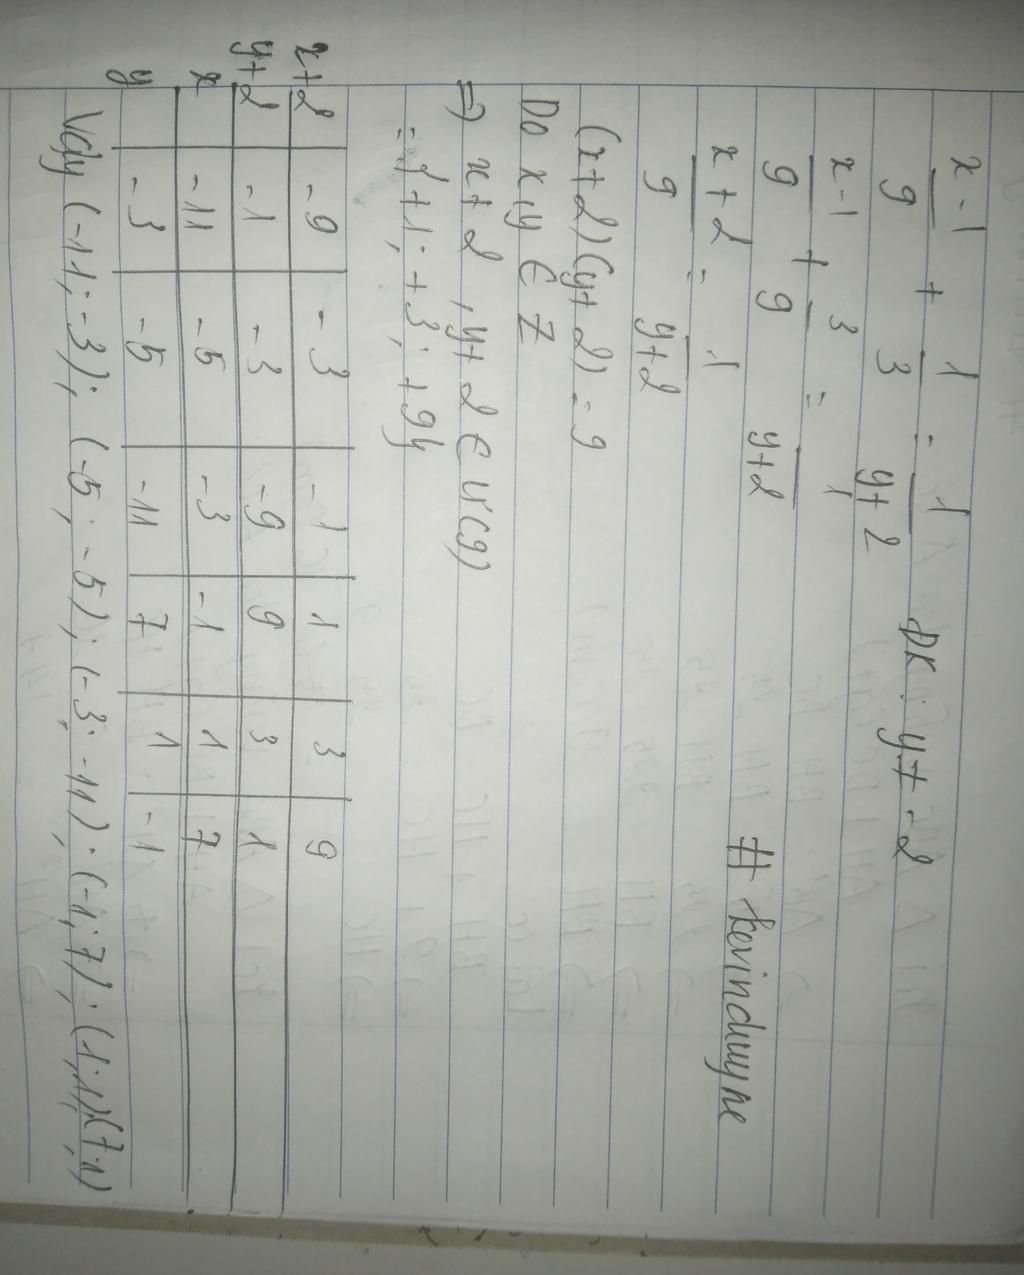 x-1/9 + 1/3 = 1/y+2 ĐK: y ≠ -2
x-1/9 + 3/9 = 1/y+2
# kevinduyne
x+2/9 = 1/y+2
(x+2)(y+2) = 9
Do x,y ∈ Z
=> x+2, y+2 ∈ Ư(9)
= {±1; ±3; ±9}
x+2 | -9 | -3 | -1 | 1 | 3 | 9
y+2 | -1 | -3 | -9 | 9 | 3 | 1
x | -11 | -5 | -3 | -1 | 1 | 7
y | -3 | -5 | -11 | 7 | 1 | -1
Vậy (-11; -3); (-5; -5); (-3; -11); (-1; 7); (1; 1); (7; -1)